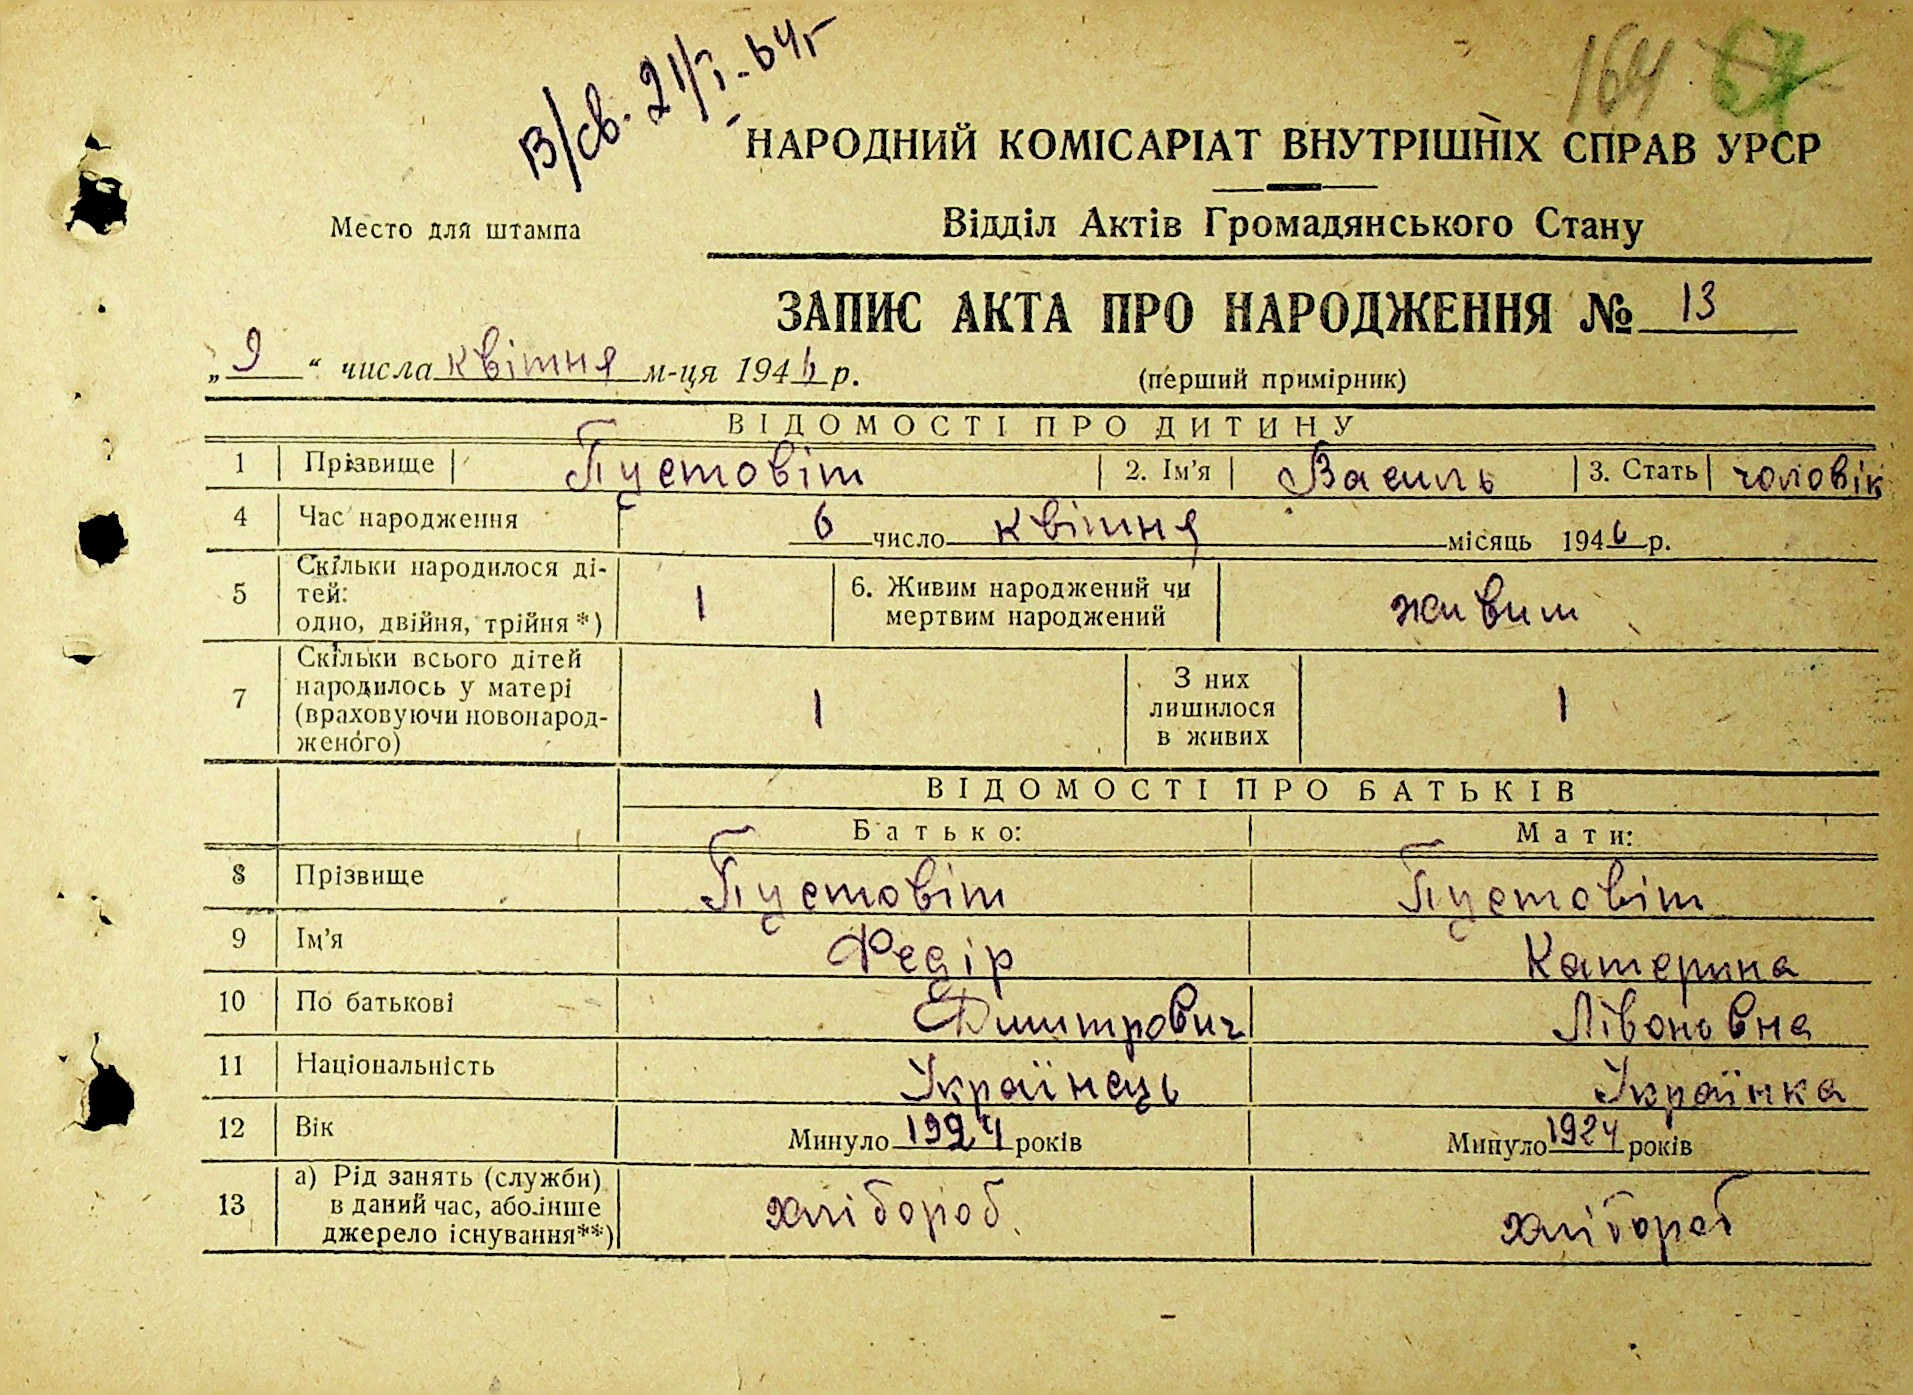 В/св. 21/I-64г
164 67
НАРОДНИЙ КОМІСАРІАТ ВНУТРІШНІХ СПРАВ УРСР
Место для штампа
Відділ Актів Громадянського Стану
ЗАПИС АКТА ПРО НАРОДЖЕННЯ № 13
„9“ числа квітня м-ця 1946 р.
(перший примірник)
ВІДОМОСТІ ПРО ДИТИНУ
1 Прізвище Пустовіт 2. Ім'я Василь 3. Стать чоловік
4 Час народження 6 число квітня місяць 1946 р.
5 Скільки народилося ді-
тей:
одно, двійня, трійня *) 1 6. Живим народжений чи
мертвим народжений живим
7 Скільки всього дітей
народилось у матері
(враховуючи новонарод-
женого) 1 З них
лишилося
в живих 1
ВІДОМОСТІ ПРО БАТЬКІВ
Батько: Мати:
8 Прізвище Пустовіт Пустовіт
9 Ім'я Федір Катерина
10 По батькові Дмитрович Лівоновна
11 Національність Українець Українка
12 Вік Минуло 1924 років Минуло 1924 років
13 а) Рід занять (служби)
в даний час, або інше
джерело існування**) хлібороб хлібороб